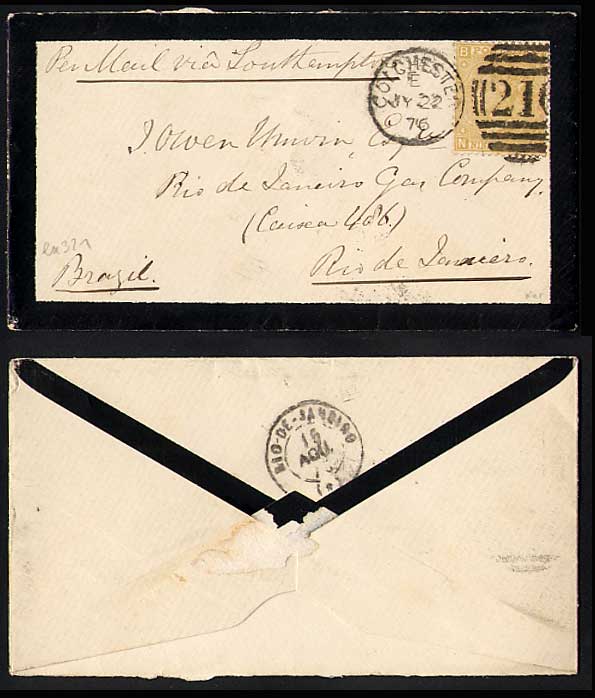 Per Mail via Southampton
COLCHESTER
E
JY 22
76
B
N
210
J Owen Unwin, Esq
Rio de Janeiro Gas Company
(Caixa 486.)
Rio de Janeiro.
Brazil.
RIO-DE-JANEIRO
15
AGO